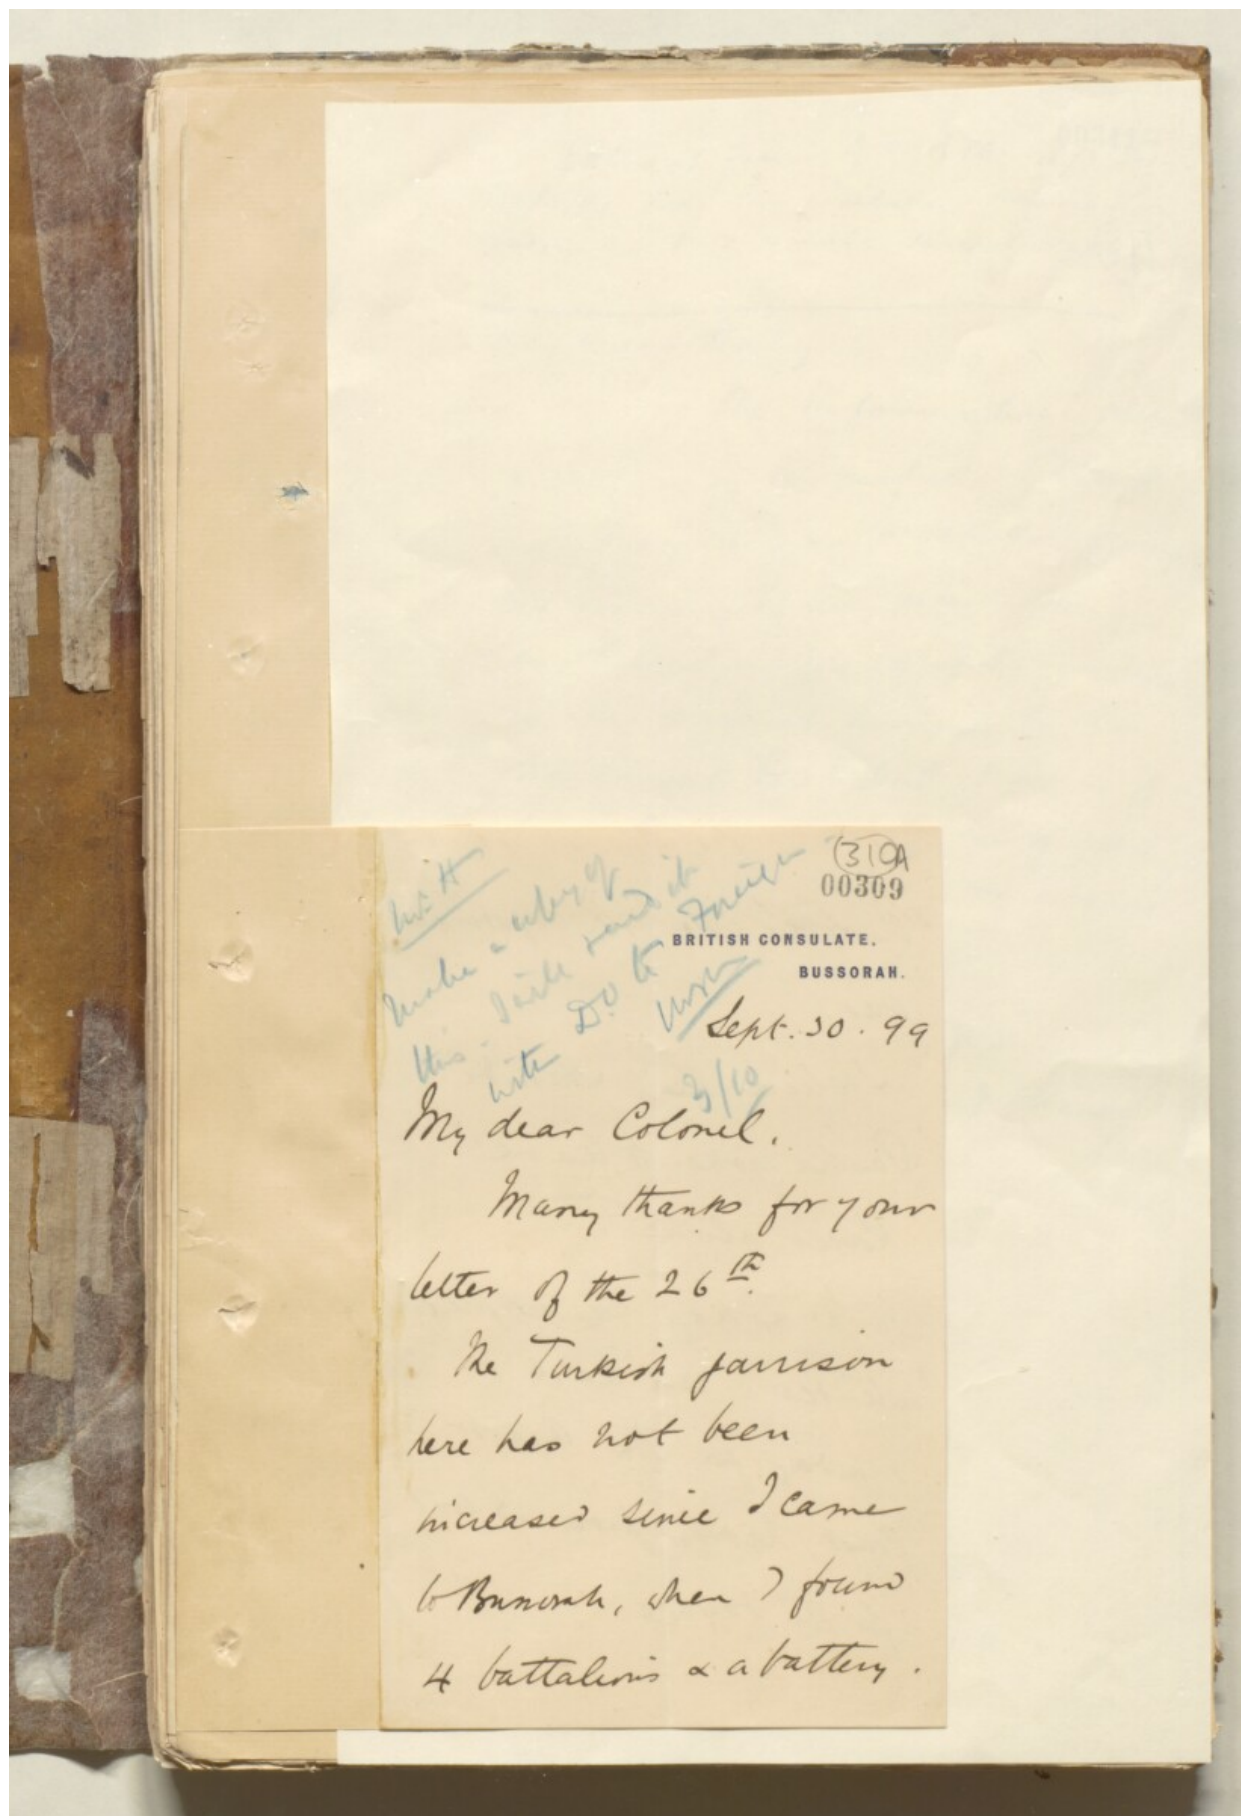 (310A
00309
Mr. H
Make a copy of
this. I will send it
with D.O to Foreign
3/10
BRITISH CONSULATE.
BUSSORAH.
Sept. 30. 99
My dear Colonel.
Many thanks for your
letter of the 26th.
The Turkish garrison
here has not been
increased since I came
to Bussorah, when I found
4 battalions & a battery.